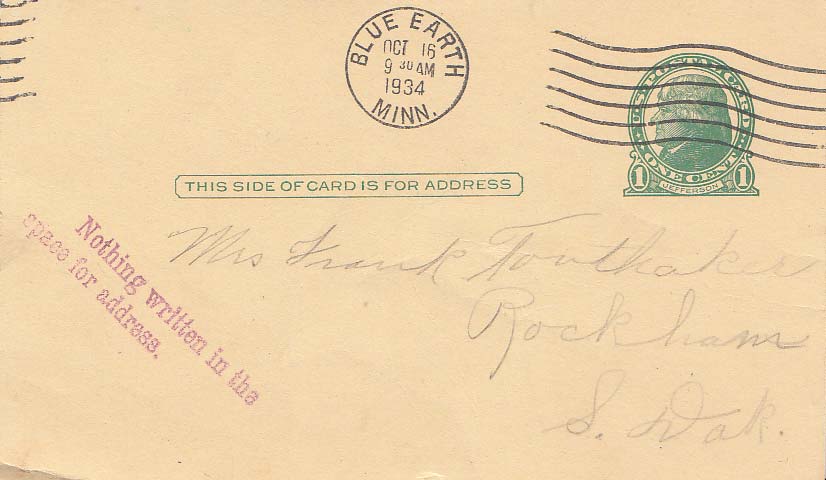 BLUE EARTH
OCT 16
9 30 AM
1934
MINN.
U.S. POSTAL CARD
ONE CENT
1 JEFFERSON 1
THIS SIDE OF CARD IS FOR ADDRESS
Nothing written in the
space for address.
Mrs Frank Toothaker
Rockham
S. Dak.